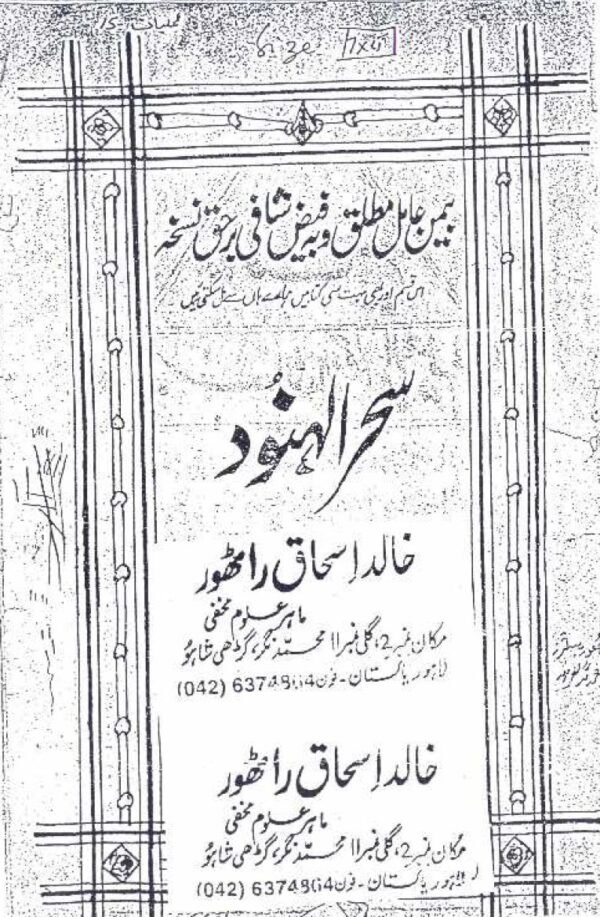 عملیات 15
Size 7x4
بیمن عامل مطلق و بہ فیض شافی برحق نسخہ
اس قسم اور بھی بہت سی کتابیں ہمارے ہاں سے مل سکتی ہیں
سحر الہنود
خالد اسحاق راٹھور
ماہر علوم مخفی
مکان نمبر 2، گلی نمبر 11 محمد نگر، گڑھی شاہو
لاہور پاکستان - فون 6374864 (042)
خالد اسحاق راٹھور
ماہر علوم مخفی
مکان نمبر 2، گلی نمبر 11 محمد نگر، گڑھی شاہو
لاہور پاکستان - فون 6374864 (042)